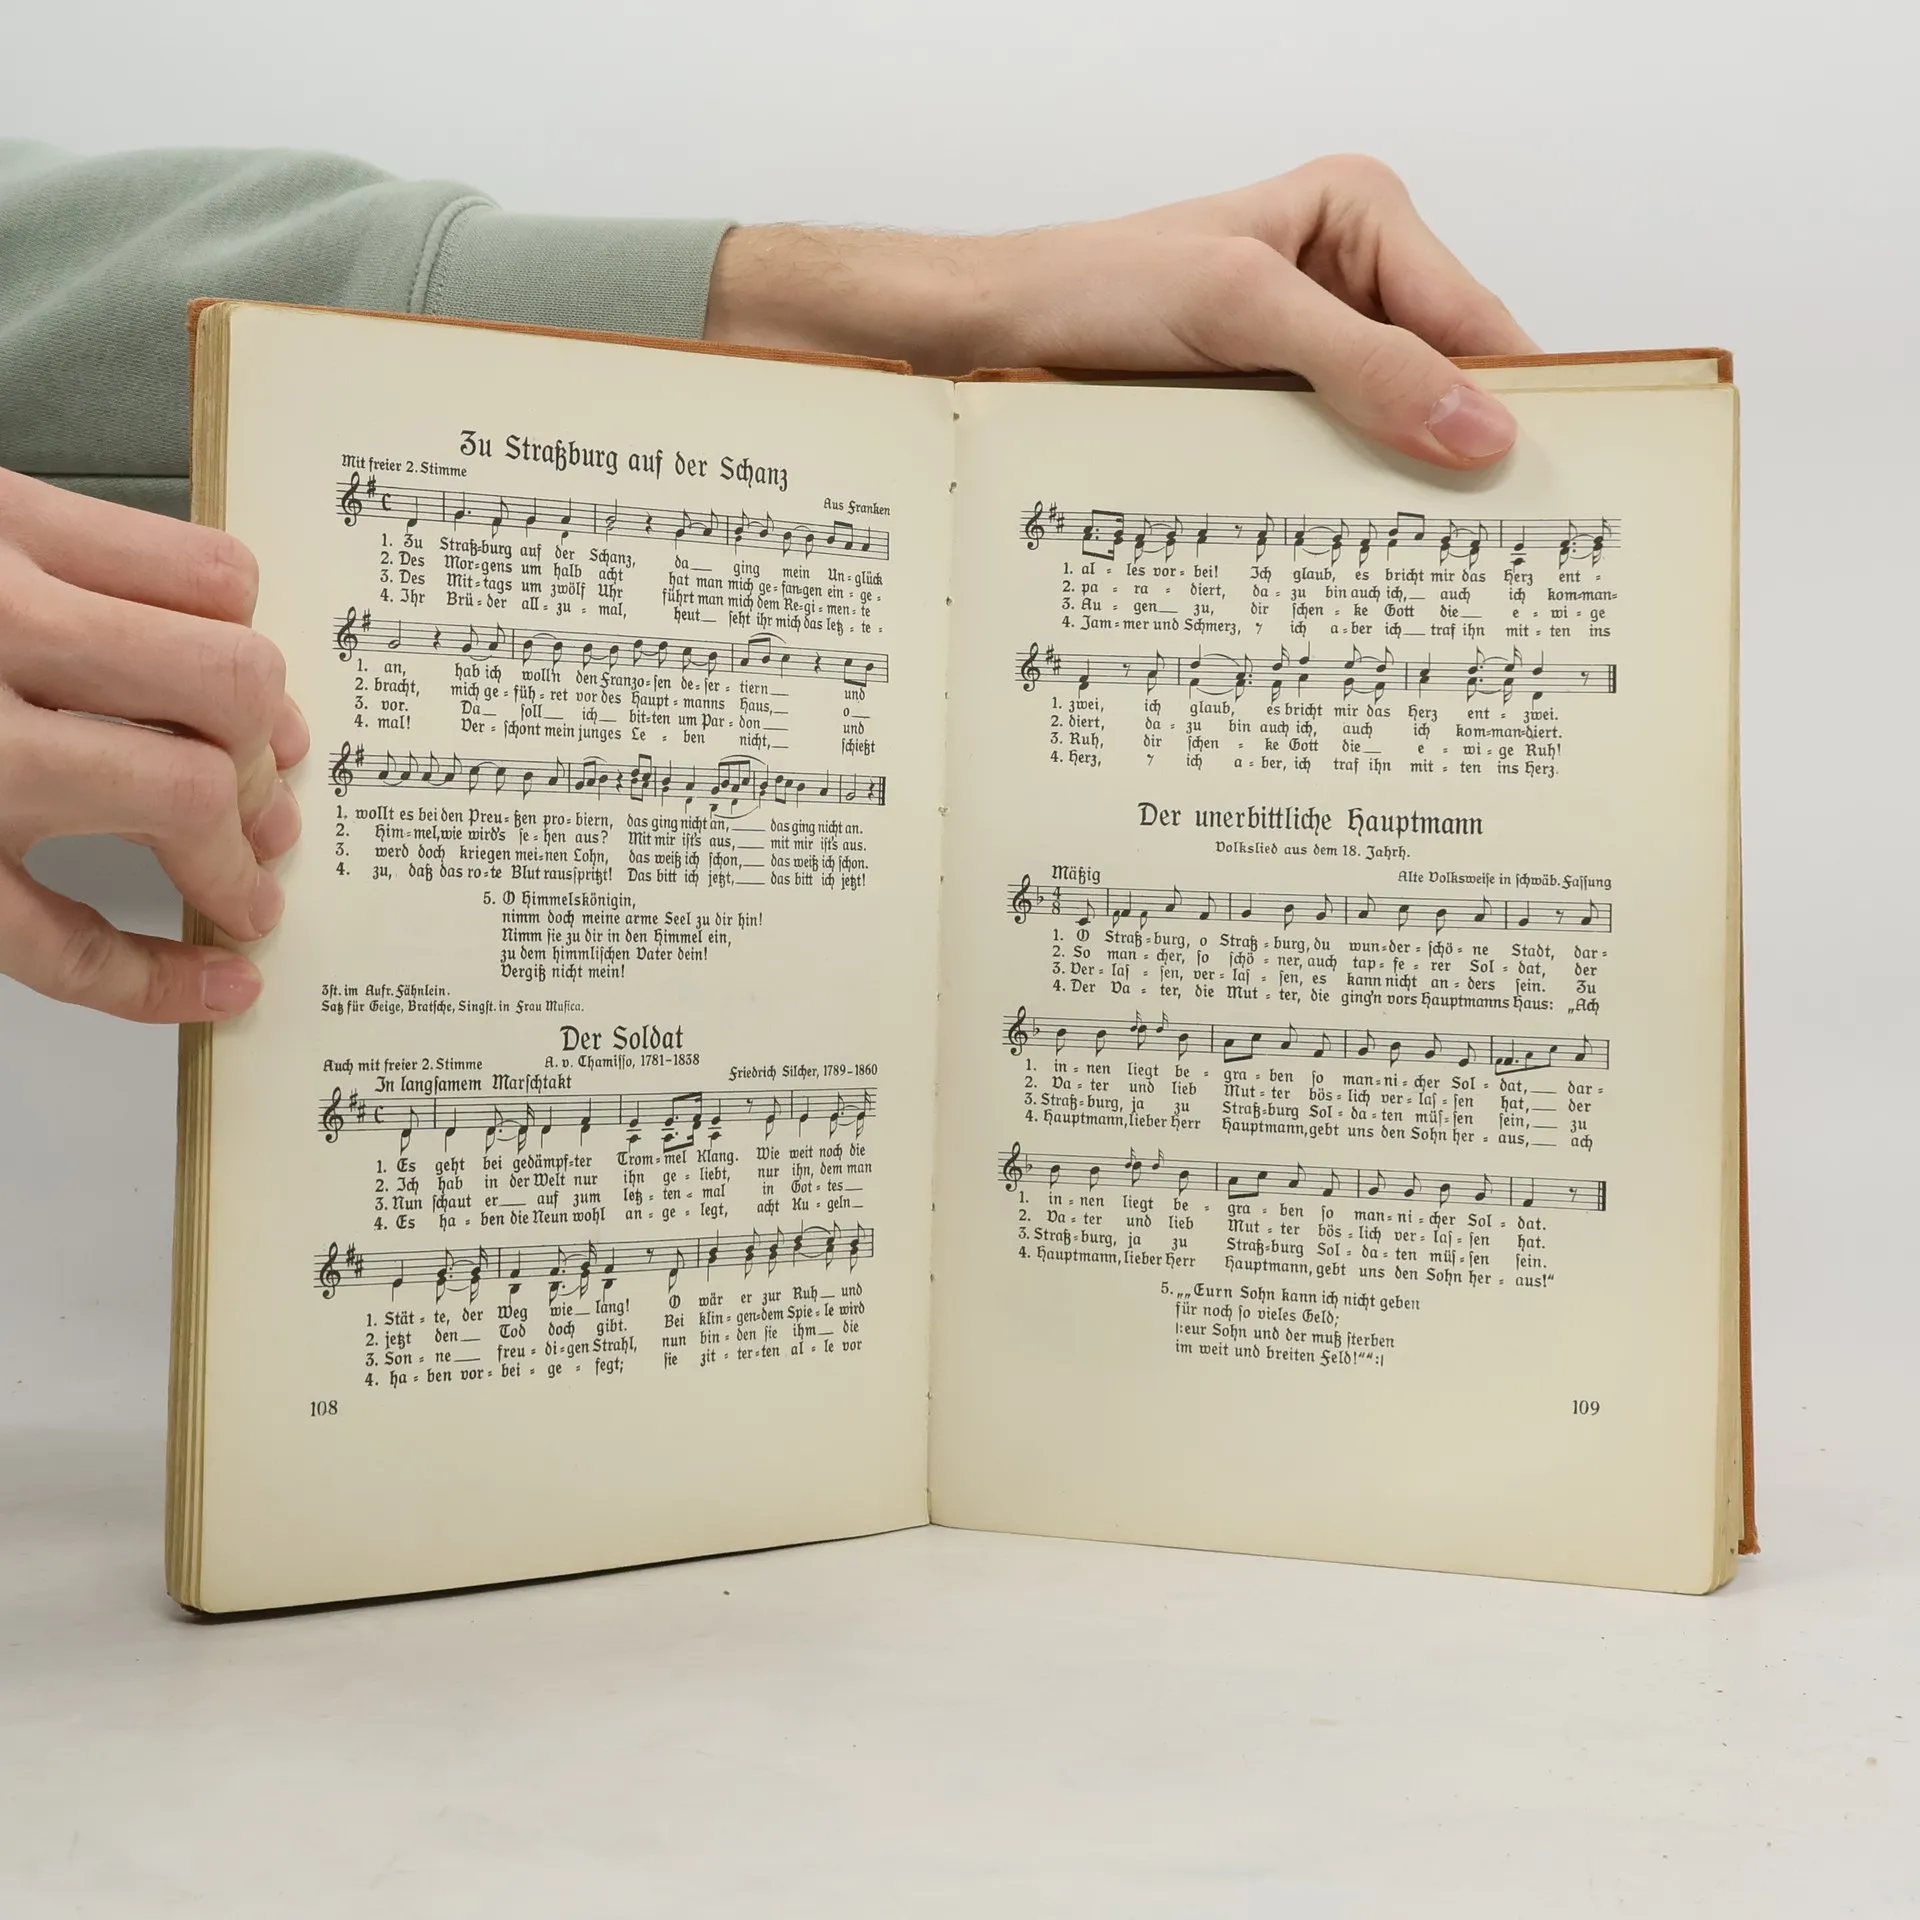 Zu Straßburg auf der Schanz
Mit freier 2. Stimme
Aus Franken
1. Zu Straß-burg auf der Schanz, da__ ging mein Un-glück
2. Des Mor-gens um halb acht hat man mich ge-fan-gen ein-ge-
3. Des Mit-tags um zwölf Uhr führt man mich dem Re-gi-men-te
4. Ihr Brü-der all-zu-mal, heut__ seht ihr mich das letz-te-
1. an, hab ich woll'n den Franzo-sen de-ser-tiern__ und
2. bracht, mich ge-füh-ret vor des Haupt-manns Haus,__ o__
3. vor. Da__ soll__ ich__ bit-ten um Par-don__ und
4. mal! Ver-schont mein junges Le-ben nicht,__ schießt
1. wollt es bei den Preu-ßen pro-biern, das ging nicht an,__ das ging nicht an.
2. Him-mel, wie wird's se-hen aus? Mit mir ist's aus,__ mit mir ist's aus.
3. werd doch kriegen mei-nen Lohn, das weiß ich schon,__ das weiß ich schon.
4. zu, daß das ro-te Blut rausspritzt! Das bitt ich jetzt,__ das bitt ich jetzt!
5. O Himmelskönigin,
nimm doch meine arme Seel zu dir hin!
Nimm sie zu dir in den Himmel ein,
zu dem himmlischen Vater dein!
Vergiß nicht mein!
Zst. im Aufr. Fähnlein.
Satz für Geige, Bratsche, Singst. in Frau Musica.
Der Soldat
Auch mit freier 2. Stimme
A. v. Chamisso, 1781-1838
Friedrich Silcher, 1789-1860
In langsamem Marschtakt
1. Es geht bei gedämpf-ter Trom-mel Klang. Wie weit noch die
2. Ich hab in der Welt nur ihn ge-liebt, nur ihn, dem man
3. Nun schaut er__ auf zum letz-ten-mal in Got-tes__
4. Es ha-ben die Neun wohl an-ge-legt, acht Ku-geln__
1. Stät-te, der Weg wie__ lang! O wär er zur Ruh__ und
2. jetzt den__ Tod doch gibt. Bei klin-gen-dem Spie-le wird
3. Son-ne__ freu-di-gen Strahl, nun bin-den sie ihm__ die
4. ha-ben vor-bei-ge-fegt; sie zit-ter-ten al-le vor
108
1. al-les vor-bei! Ich glaub, es bricht mir das Herz ent-
2. pa-ra-diert, da-zu bin auch ich,__ auch ich kom-man-
3. Au-gen__ zu, dir schen-ke Gott die__ e-wi-ge
4. Jam-mer und Schmerz, ich a-ber ich__ traf ihn mit-ten ins
1. zwei, ich glaub, es bricht mir das Herz ent-zwei.
2. diert, da-zu bin auch ich, auch ich kom-man-diert.
3. Ruh, dir schen-ke Gott die__ e-wi-ge Ruh!
4. Herz, ich a-ber, ich traf ihn mit-ten ins Herz.
Der unerbittliche Hauptmann
Volkslied aus dem 18. Jahrh.
Mäßig
Alte Volksweise in schwäb. Fassung
1. O Straß-burg, o Straß-burg, du wun-der-schö-ne Stadt, dar-
2. So man-cher, so schö-ner, auch tap-fe-rer Sol-dat, der
3. Ver-las-sen, ver-las-sen, es kann nicht an-ders sein. Zu
4. Der Va-ter, die Mut-ter, die ging'n vors Hauptmanns Haus: „Ach
1. in-nen liegt be-gra-ben so man-ni-cher Sol-dat,__ dar-
2. Va-ter und lieb Mut-ter bös-lich ver-las-sen hat,__ der
3. Straß-burg, ja zu Straß-burg Sol-da-ten müs-sen sein,__ zu
4. Hauptmann, lieber Herr Hauptmann, gebt uns den Sohn her-aus,__ ach
1. in-nen liegt be-gra-ben so man-ni-cher Sol-dat.
2. Va-ter und lieb Mut-ter bös-lich ver-las-sen hat.
3. Straß-burg, ja zu Straß-burg Sol-da-ten müs-sen sein.
4. Hauptmann, lieber Herr Hauptmann, gebt uns den Sohn her-aus!“
5. „„Eurn Sohn kann ich nicht geben
für noch so vieles Geld;
|: eur Sohn und der muß sterben
im weit und breiten Feld!““ :|
109